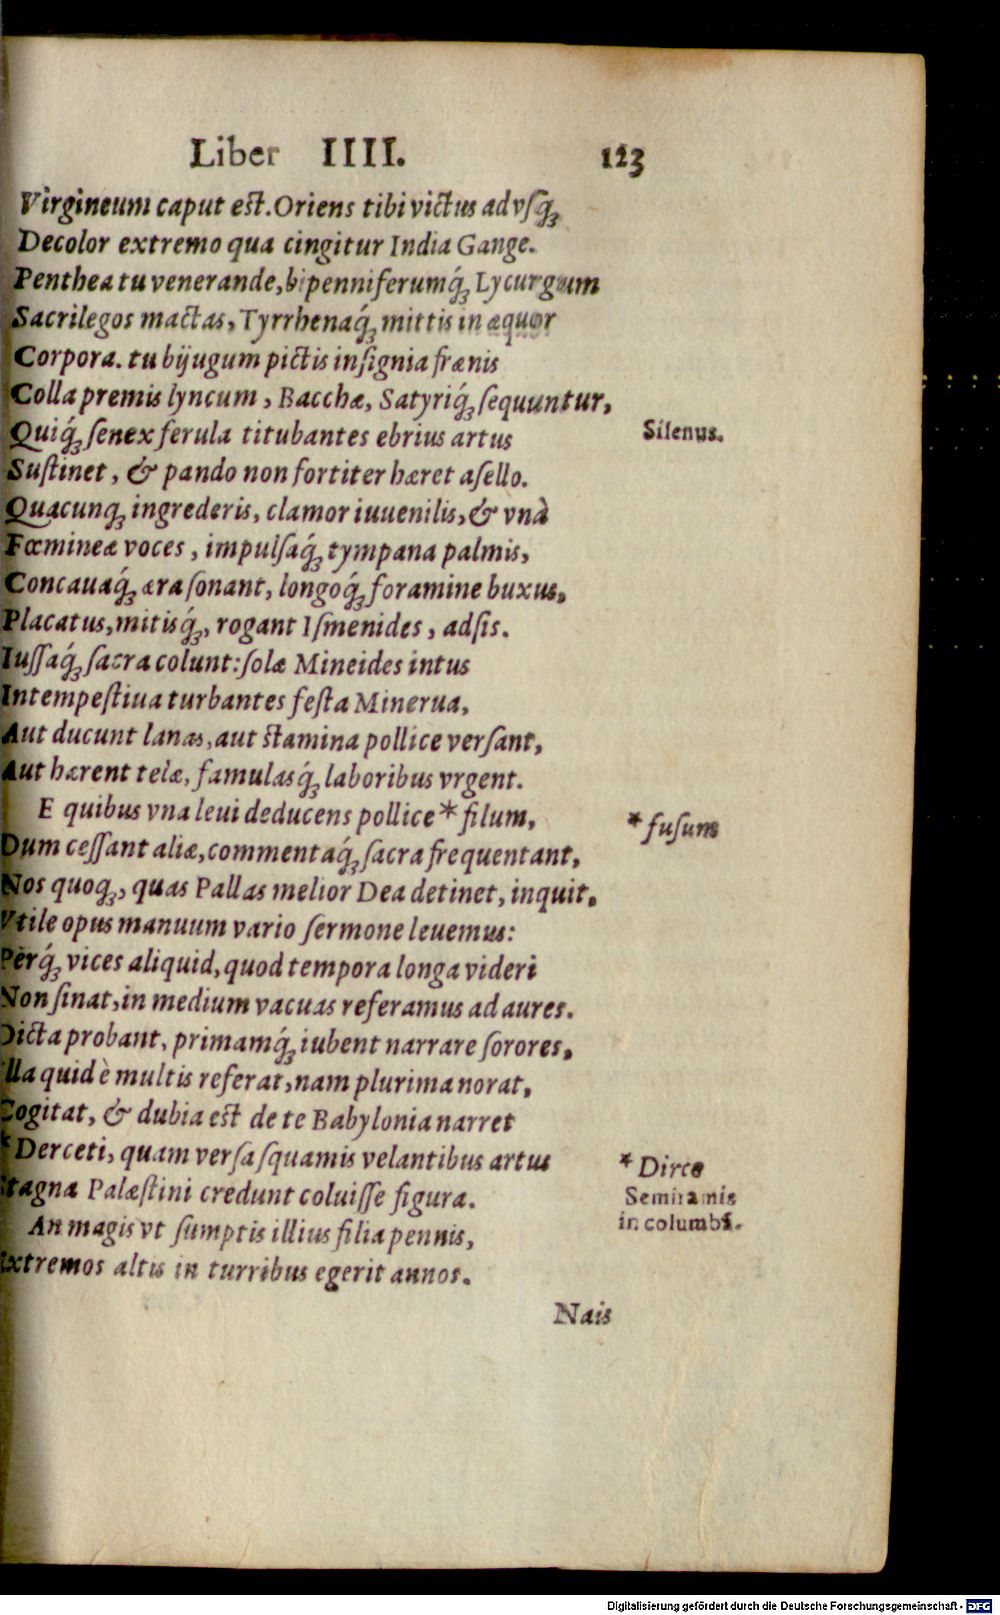 Liber IIII. 123
Virgineum caput est. Oriens tibi victus ad vſq́ꝫ
Decolor extremo qua cingitur India Gange.
Penthea tu venerande, bipenniferumq́ꝫ Lycurgum
Sacrilegos mactas, Tyrrhenaq́ꝫ mittis in æquor
Corpora. tu bijugum pictis inſignia frænis
Colla premis lyncum, Bacchæ, Satyriq́ꝫ ſequuntur,
Quiq́ꝫ ſenex ferula titubantes ebrius artus
Silenus.
Suſtinet, & pando non fortiter hæret aſello.
Quacunqꝫ ingrederis, clamor iuuenilis, & vnà
Fœmineæ voces, impulſaq́ꝫ tympana palmis,
Concauaq́ꝫ æra ſonant, longoq́ꝫ foramine buxus,
Placatus, mitisq́ꝫ, rogant Iſmenides, adſis.
Iuſſaq́ꝫ ſacra colunt: ſolæ Mineides intus
Intempeſtiua turbantes feſta Minerua,
Aut ducunt lanas, aut stamina pollice verſant,
Aut hærent telæ, famulasq́ꝫ laboribus vrgent.
E quibus vna leui deducens pollice * filum,
* fuſum
Dum ceſſant aliæ, commentaq́ꝫ ſacra frequentant,
Nos quoqꝫ, quas Pallas melior Dea detinet, inquit,
Vtile opus manuum vario ſermone leuemus:
Pèrq́ꝫ vices aliquid, quod tempora longa videri
Non ſinat, in medium vacuas referamus ad aures.
Dicta probant, primamq́ꝫ iubent narrare ſorores,
Illa quid è multis referat, nam plurima norat,
Cogitat, & dubia est de te Babylonia narret
* Derceti, quam verſa ſquamis velantibus artus
* Dirce
Stagna Palæſtini credunt coluiſſe figura.
Semiramis
An magis vt ſumptis illius filia pennis,
in columbā.
Extremos altis in turribus egerit annos.
Nais
Digitalisierung gefördert durch die Deutsche Forschungsgemeinschaft - DFG